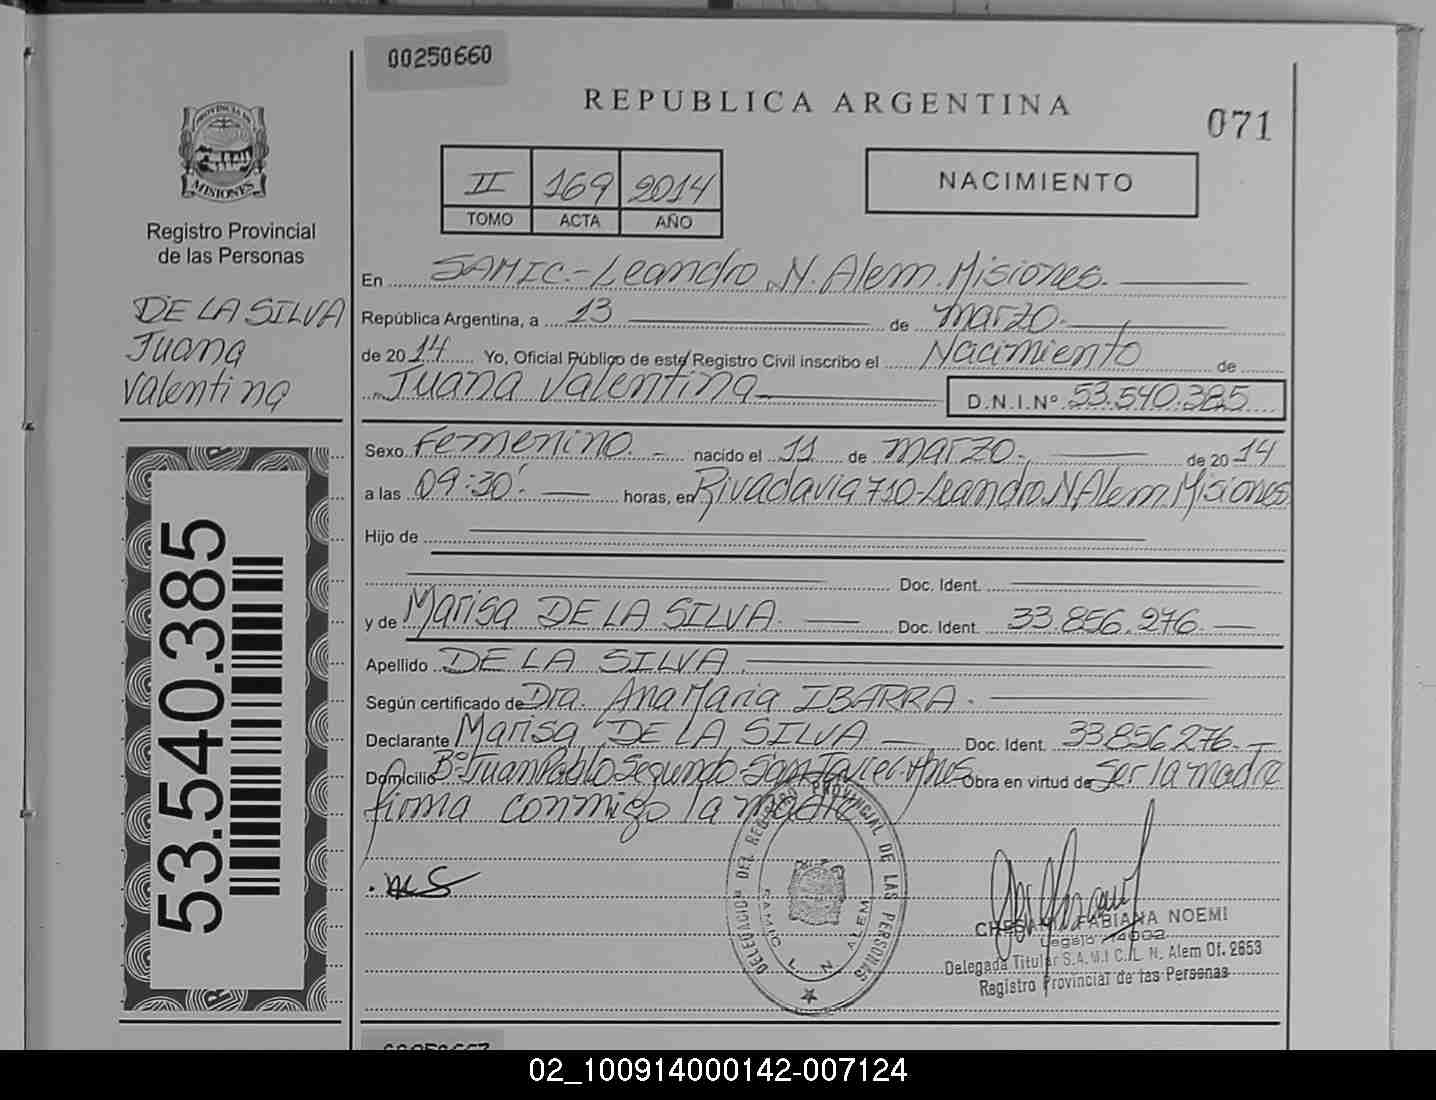 00250660
REPUBLICA ARGENTINA
071
II 169 2014
TOMO ACTA AÑO
NACIMIENTO
PROVINCIA DE
MISIONES
Registro Provincial
de las Personas
DE LA SILVA
Juana
Valentina
53.540.385
En SAMIC.- Leandro N. Alem. Misiones.
República Argentina, a 13 de marzo.
de 2014 Yo, Oficial Público de este Registro Civil inscribo el Nacimiento de
Juana Valentina D.N.I.Nº 53.540.385
Sexo Femenino. - nacido el 11 de marzo. de 2014
a las 09:30' horas, en Rivadavia 710-Leandro N Alem Misiones
Hijo de
Doc. Ident.
y de Marisa DE LA SILVA. Doc. Ident. 33.856.276.
Apellido DE LA SILVA.
Según certificado de Dra. Ana Maria IBARRA.
Declarante Marisa DE LA SILVA Doc. Ident. 33856276.
Domicilio Bº Juan Pablo Segundo-San Javier Obra en virtud de Ser la madre
firma conmigo la madre
DELEGACION DEL REGISTRO PROVINCIAL DE LAS PERSONAS
SAMIC L. N. ALEM
FABIANA NOEMI
Legajo
Delegada Titular S.A.M.I C. L. N. Alem Of. 2653
Registro Provincial de las Personas
02_100914000142-007124